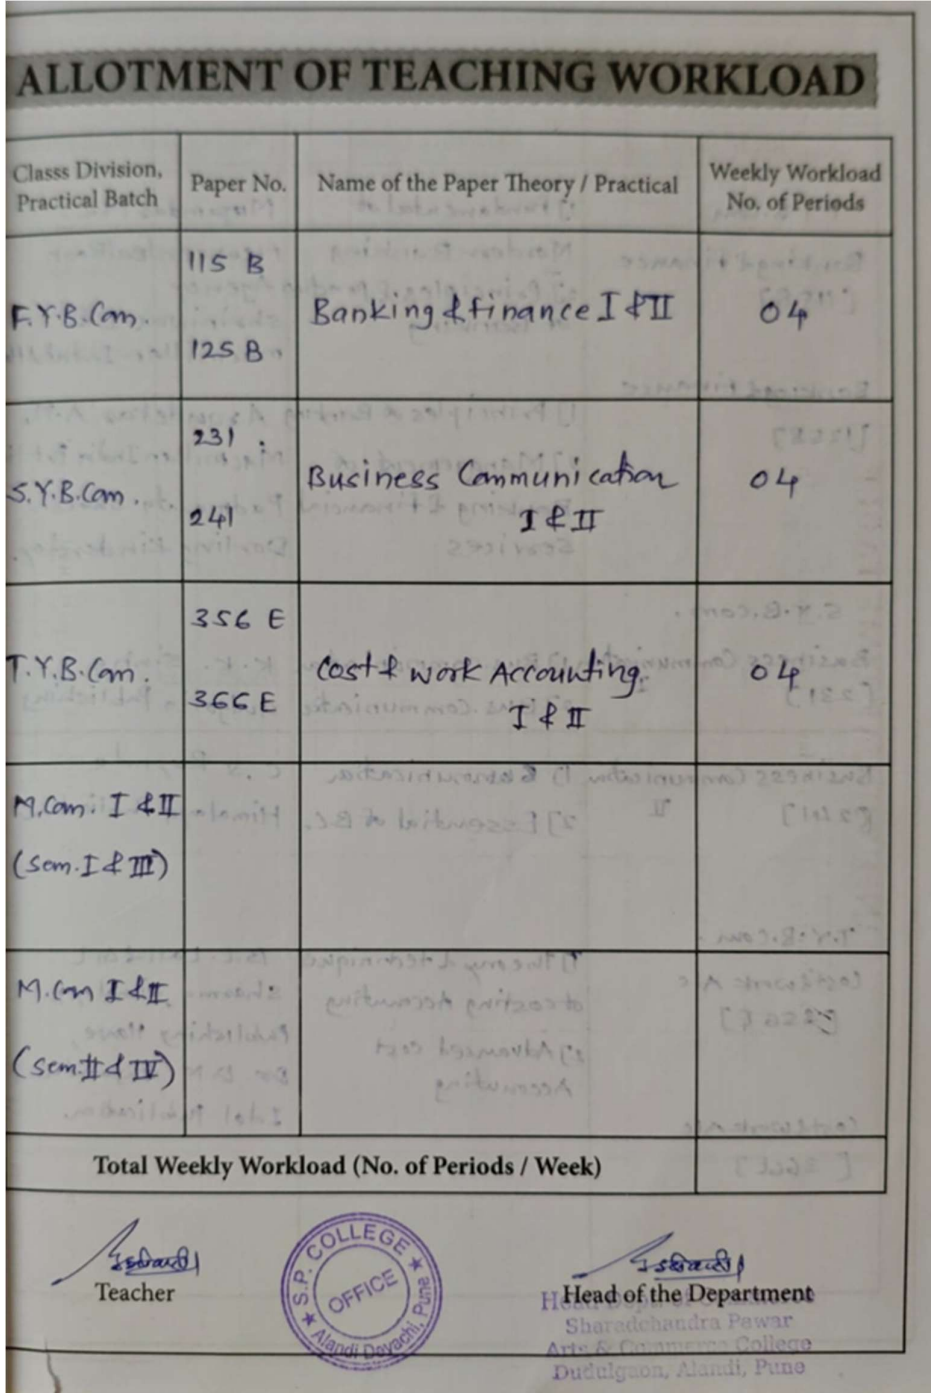 ALLOTMENT OF TEACHING WORKLOAD
Classs Division,
Practical Batch
Paper No.
Name of the Paper Theory / Practical
Weekly Workload
No. of Periods
F.Y.B.Com.
115 B
125 B
Banking & finance I & II
04
S.Y.B.Com.
231
241
Business Communication
I & II
04
T.Y.B.Com.
356 E
366 E
Cost & work Accounting
I & II
04
M.Com. I & II
(Sem. I & III)
M.Com I & II
(Sem. II & IV)
Total Weekly Workload (No. of Periods / Week)
Teacher
S.P. COLLEGE
OFFICE
Alandi Devachi, Pune
Head of the Department
Head Dept of Commerce
Sharadchandra Pawar
Arts & Commerce College
Dudulgaon, Alandi, Pune